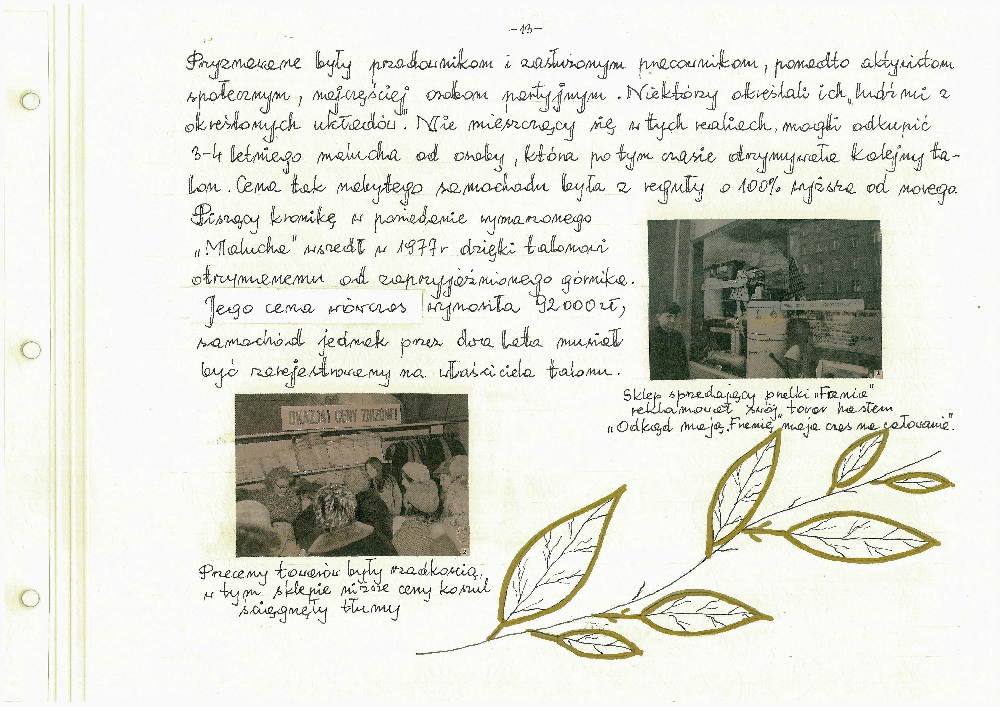 -13-
Przyznawane były przodownikom i zasłużonym pracownikom, ponadto aktywistom
społecznym, najczęściej osobom partyjnym. Niektórzy określali ich „ludźmi z
określonych układów". Nie mieszczący się w tych realiach, mogli odkupić
3-4 letniego malucha od osoby, która po tym czasie otrzymywała kolejny ta-
lon. Cena tak nabytego samochodu była z reguły o 100% wyższa od nowego.
Piszący kronikę w posiadanie wymarzonego
„Malucha" wszedł w 1977r dzięki talonowi
otrzymanemu od zaprzyjaźnionego górnika.
Jego cena wówczas wynosiła 92000 zł,
samochód jednak przez dwa lata musiał
być zarejestrowany na właściciela talonu.
Sklep sprzedający pralki „Frania"
reklamował swój towar hasłem
„Odkąd mają „Franię" maja czas na całowanie".
OKAZJA! CENY ZNIŻONE!
Przeceny towarów były rzadkością,
w tym sklepie niższe ceny koszul
ściągnęły tłumy